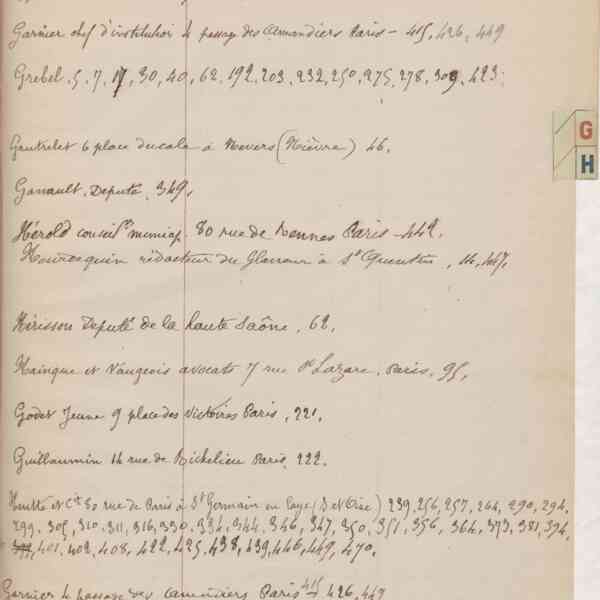 Garnier chef d'institution 4 passage des Amandiers Paris - 415, 426, 449
Grebel. 5, 7, 17, 30, 40, 62, 192, 203, 232, 250, 275, 278, 309, 423.
G
H
Gautrelet 6 place ducale à Nevers (Nièvre) 46.
Ganault, Député, 349.
Hérold conseil.er municip. 80 rue de Rennes Paris - 442.
rédacteur du Glaneur à St Quentin, 14, 447.
Hérisson Député de la haute Saône, 62.
Hainque et Vaugeois avocats 7 rue St Lazare, Paris, 95,
Godet Jeune 9 place des Victoires Paris, 221.
Guillaumin 14 rue de Richelieu Paris, 222.
et Cie 80 rue de Paris à St Germain en Laye (S et Oise) 239, 256, 257, 264, 290, 294,
299, 305, 310, 311, 316, 330, 334, 344, 346, 347, 350, 351, 356, 364, 373, 381, 394,
401, 402, 408, 422, 425, 438, 439, 446, 449, 470.
Garnier 4 passage des Amandiers Paris 415 426, 449